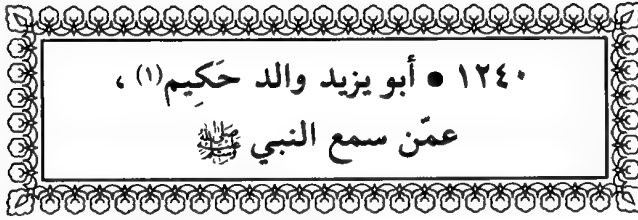 ١٢٤٠ ● أبو يزيد والد حَكِيم(١) ،
عمّن سمع النبي ﷺ